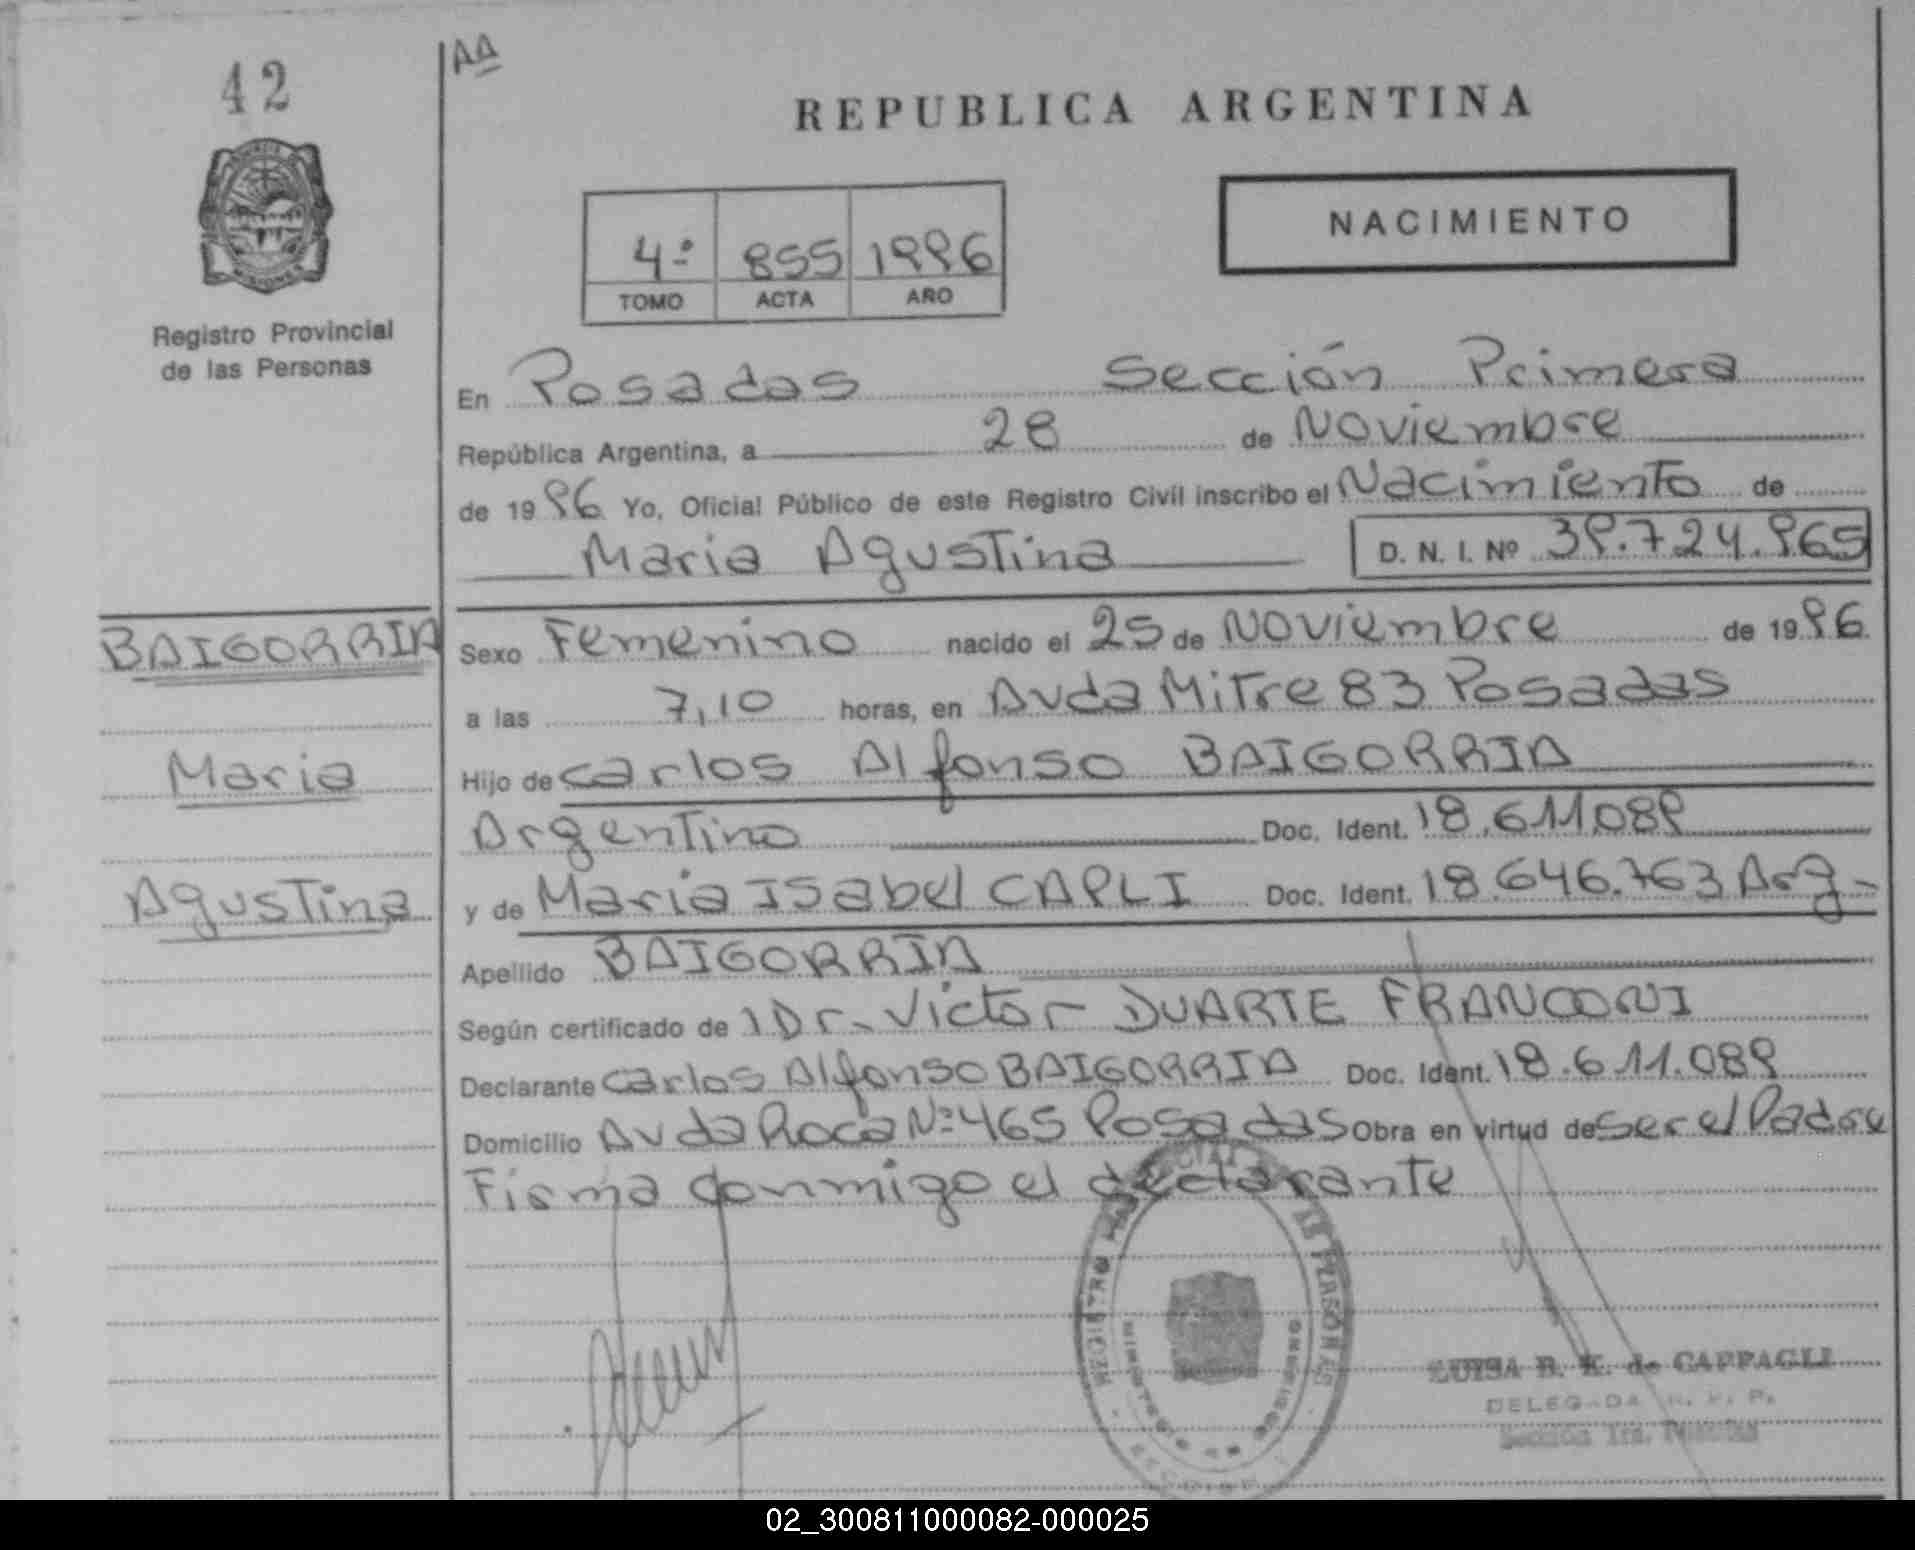 42
AA
REPUBLICA ARGENTINA
NACIMIENTO
4º 855 1996
TOMO ACTA AÑO
Registro Provincial
de las Personas
En Posadas Sección Primera
República Argentina, a 28 de Noviembre
de 1996 Yo, Oficial Público de este Registro Civil inscribo el Nacimiento de
Maria Agustina D. N. I. Nº 39.724.965
BAIGORRIA
Maria
Agustina
Sexo Femenino nacido el 25 de Noviembre de 1996
a las 7,10 horas, en Avda Mitre 83 Posadas
Hijo de Carlos Alfonso BAIGORRIA
Argentino Doc. Ident. 18.611.089
y de Maria Isabel CAPLI Doc. Ident. 18.646.763 Arg-
Apellido BAIGORRIA
Según certificado de 1 Dr. Victor DUARTE FRANCONI
Declarante Carlos Alfonso BAIGORRIA Doc. Ident. 18.611.089
Domicilio Avda Roca Nº 465 Posadas Obra en virtud de ser el Padre
Firma conmigo el declarante
LUISA B. K. de CAPPAGLI
DELEGADA R. P. P.
Sección 1ra. Posadas
02_300811000082-000025